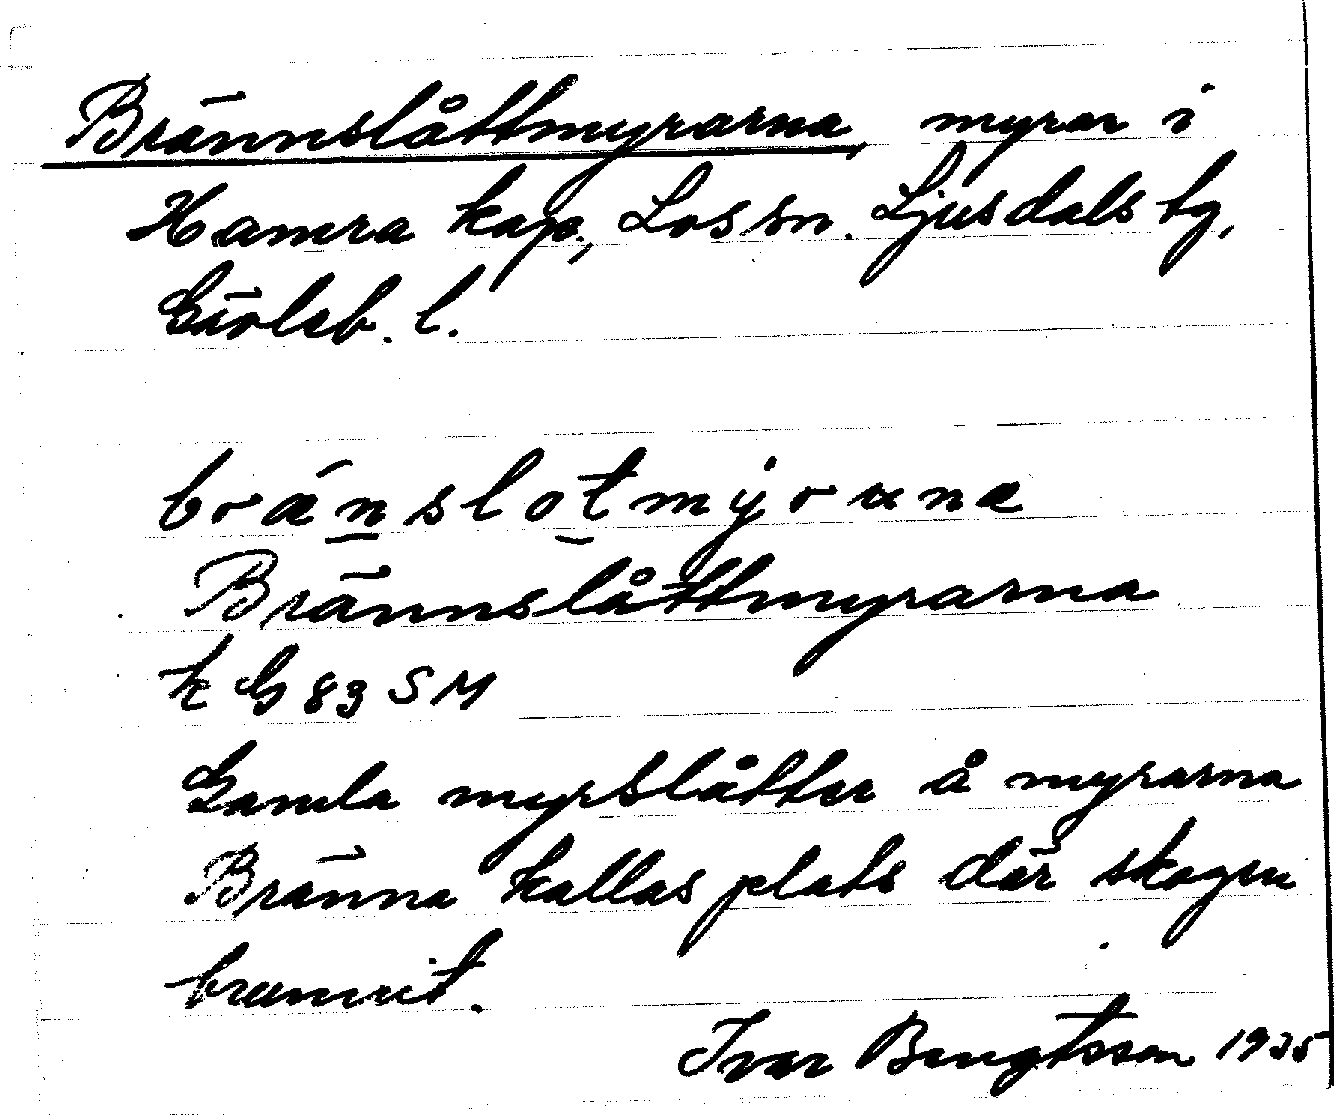 Brännslåttmyrarna, myrar i
Hamra kap., Los sn. Ljusdals tg,
Gävleb. l.
bränslotmyrune
Brännslåttmyrarna
k G 83 SM
Gamla myrslåtter å myrarna
Bränna kallas plats där skogen
brunnit.
Ivar Bengtsson 1935